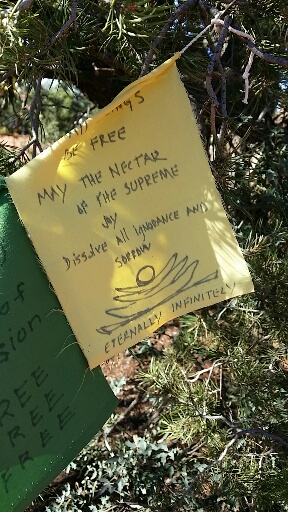 BE FREE
MAY THE NECTAR
OF THE SUPREME
JOY
Dissolve All IGNORANCE AND
SORROW
ETERNALLY INFINITELY
of
sion
REE
REE
FREE